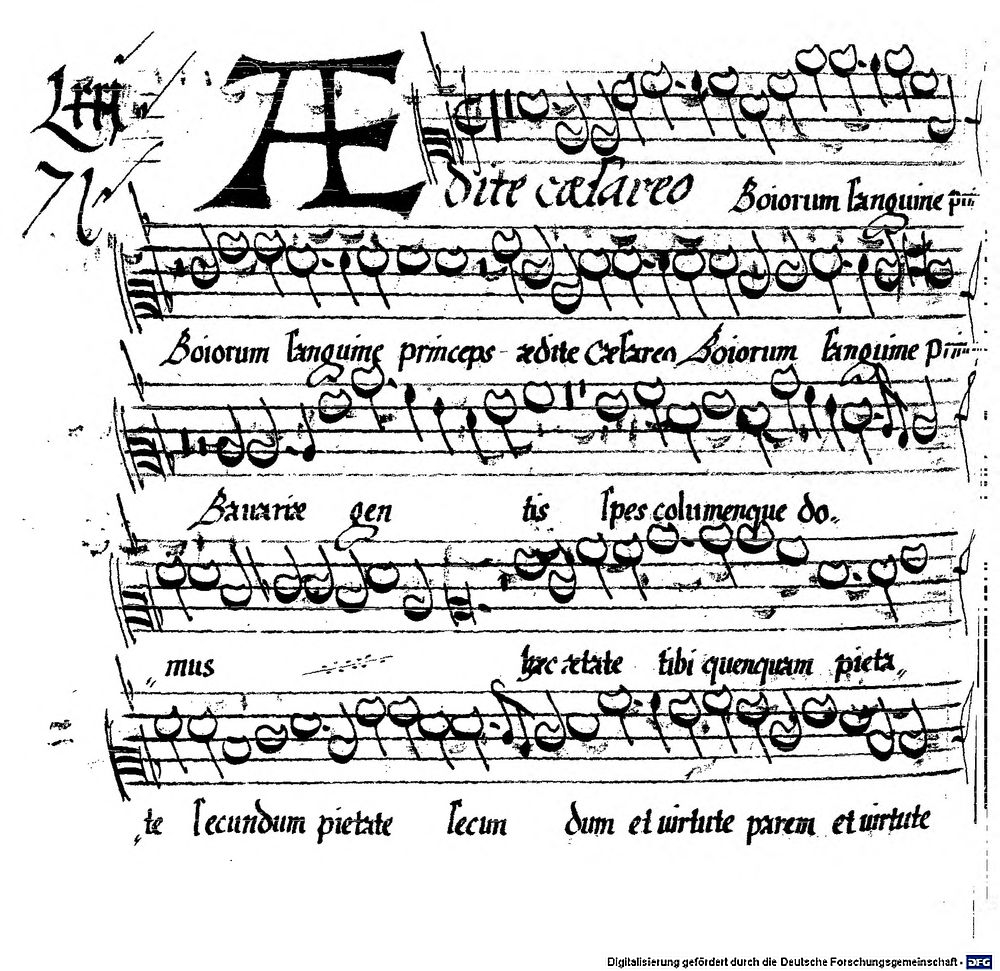 Ædite cæsareo Boiorum sanguine
Boiorum sanguine princeps ædite Cæsareo Boiorum sanguine
Bavariæ gen tis spes columenque do„
„mus hæc ætate tibi quenquam pieta„
„te secundum pietate secun dum et uirtute parem et uirtute
Digitalisierung gefördert durch die Deutsche Forschungsgemeinschaft - DFG